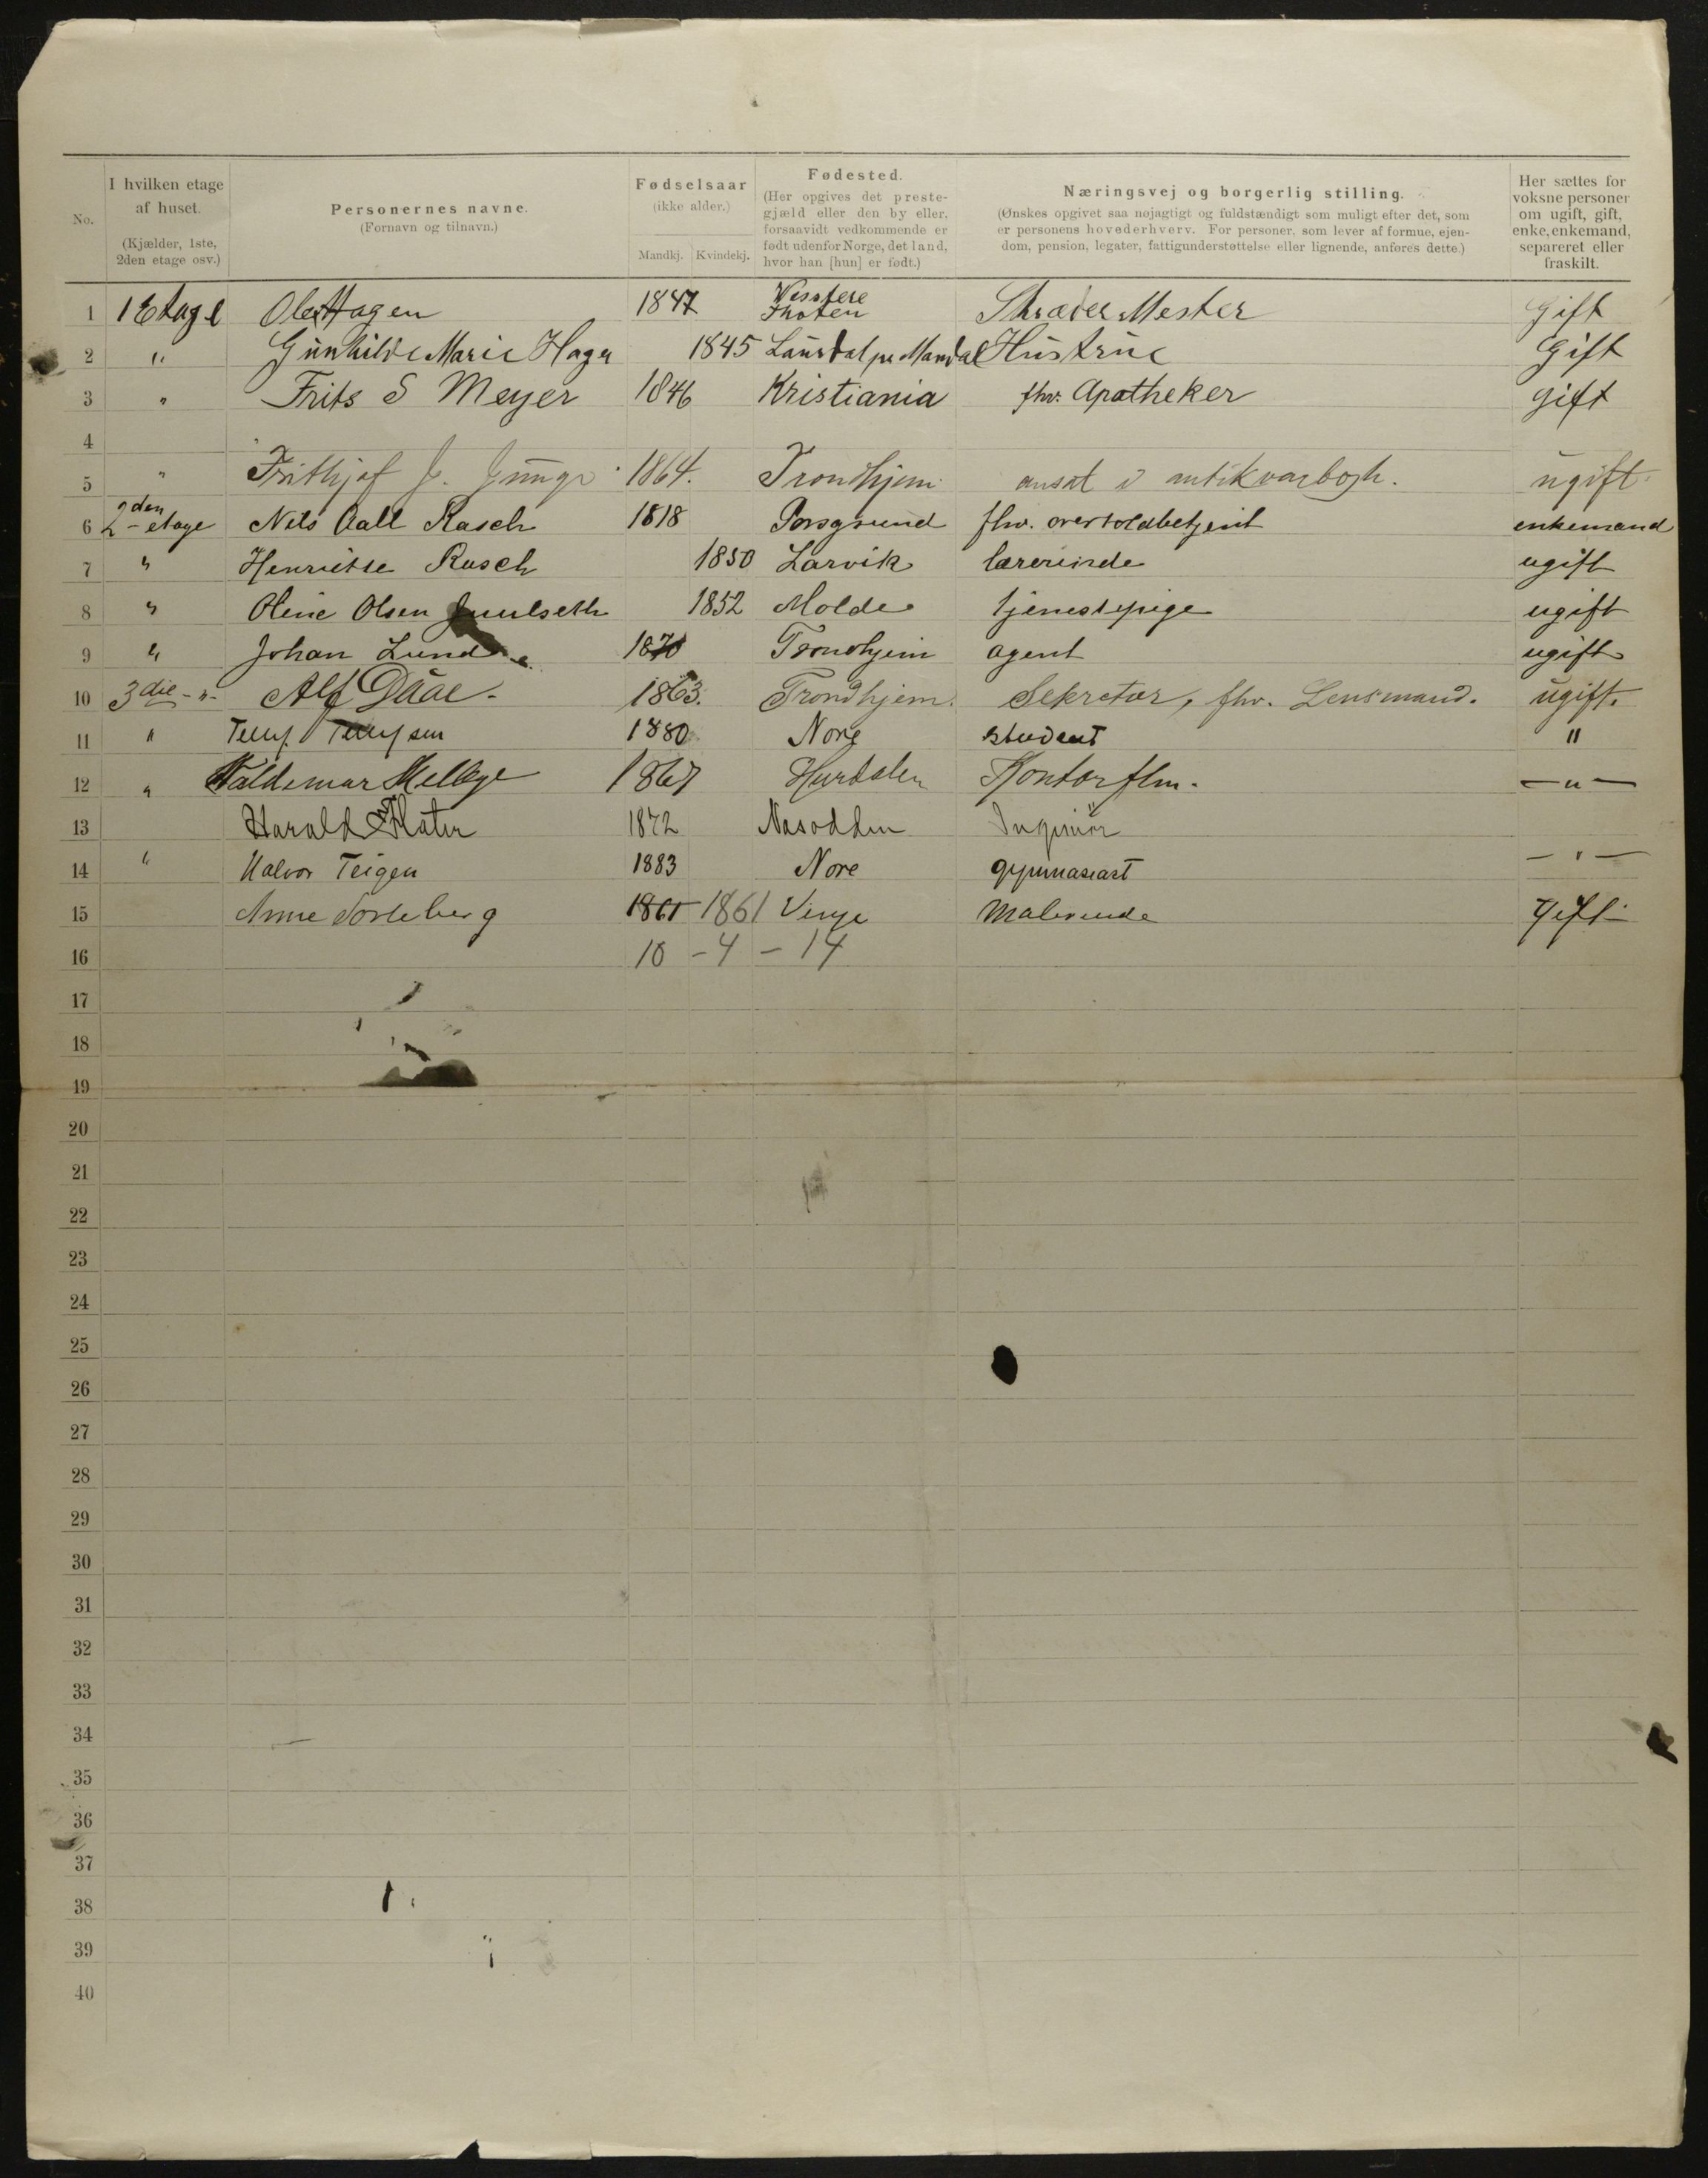 No.
I hvilken etage af huset.
(Kjælder, 1ste, 2den etage osv.)
Personernes navne.
(Fornavn og tilnavn.)
Fødselsaar
(ikke alder.)
Mandkj. Kvindekj.
Fødested.
(Her opgives det preste-
gjæld eller den by eller,
forsaavidt vedkommende er
født udenfor Norge, det land,
hvor han [hun] er født.)
Næringsvej og borgerlig stilling.
(Ønskes opgivet saa nøjagtigt og fuldstændigt som muligt efter det, som
er personens hovederhverv. For personer, som lever af formue, ejen-
dom, pension, legater, fattigunderstøttelse eller lignende, anføres dette.)
Her sættes for
voksne personer
om ugift, gift,
enke, enkemand,
separeret eller
fraskilt.
1 1 Etage Ole Hagen 1847 Thoten Skræder Mester Gift
2 " Gunhilde Marie Hagen 1845 Laurdal pr Mandal Hustrue Gift
3 " Frits S Meyer 1846 Kristiania fhv. Apotheker gift
4
5 " Frithjof J. 1864. Trondhjem ansat i antikvarbogh. ugift
6 2den etage Nils Aall Rasch 1818 Porsgrund fhv. overtoldbetjent enkemand
7 " Henriette Rasch 1850 Larvik lærerinde ugift
8 " Oline Olsen 1852 Molde tjenestepige ugift
9 " Johan Lund 1870 Trondhjem agent ugift
10 3die -"- Alf Dåae. 1863. Trondhjem. Sekretær, fhv. Lensmand. ugift.
11 " 1880 Nore student "
12 " Valdemar Melbye 1867 Hurdalen Kontorflm. -"-
13 Harald 1872 Nesodden Ingeniør
14 " Halvor Teigen 1883 Nore gymnasiast -"-
15 Anne 1861 1861 Vinje Malerinde Gift
16 10 - 4 - 14
17
18
19
20
21
22
23
24
25
26
27
28
29
30
31
32
33
34
35
36
37
38
39
40